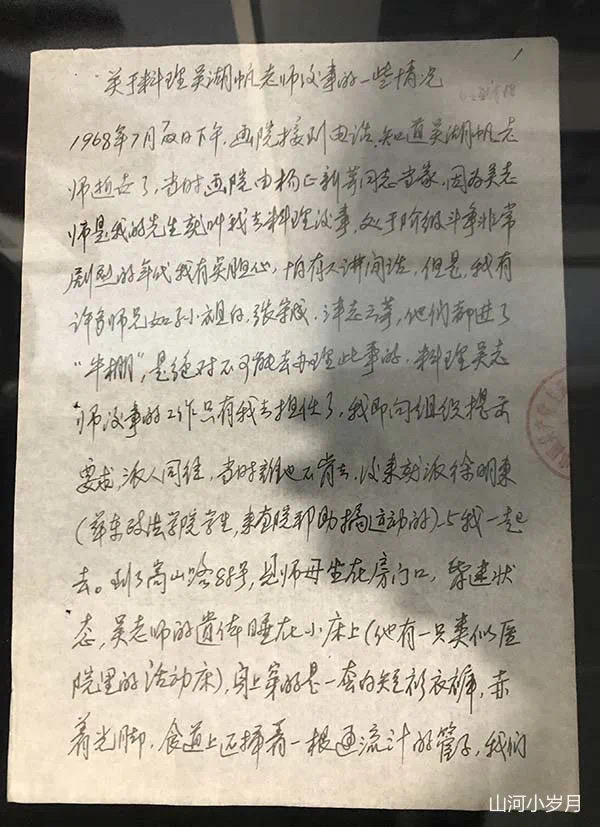 1
关于料理吴湖帆老师后事的一些情况
1968年7月 日下午，画院接到电话，知道吴湖帆老
师逝世了，当时画院由杨正新等同志当家，因为吴老
师是我的先生就叫我去料理后事，处于阶级斗争非常
剧烈的年代我有点担心，怕有人讲闲话，但是，我有
许多师兄如孙祖白，张守成，潘志云等，他们都进了
"牛棚"，是绝对不可能去办理此事的，料理吴老
师后事的工作只有我去担任了，我即向组织提出
要求，派人同往，当时谁也不肯去，后来就派徐明东
(华东政法学院学生，来画院帮助搞运动的)与我一起
去。到了嵩山路88号，见师母坐在房门口，昏迷状
态，吴老师的遗体睡在小床上(他有一只类似医
院里的活动床)，身上穿的是一套白短衫衣裤，赤
着光脚，食道上还插着一根通流汁的管子，我们
山河小岁月